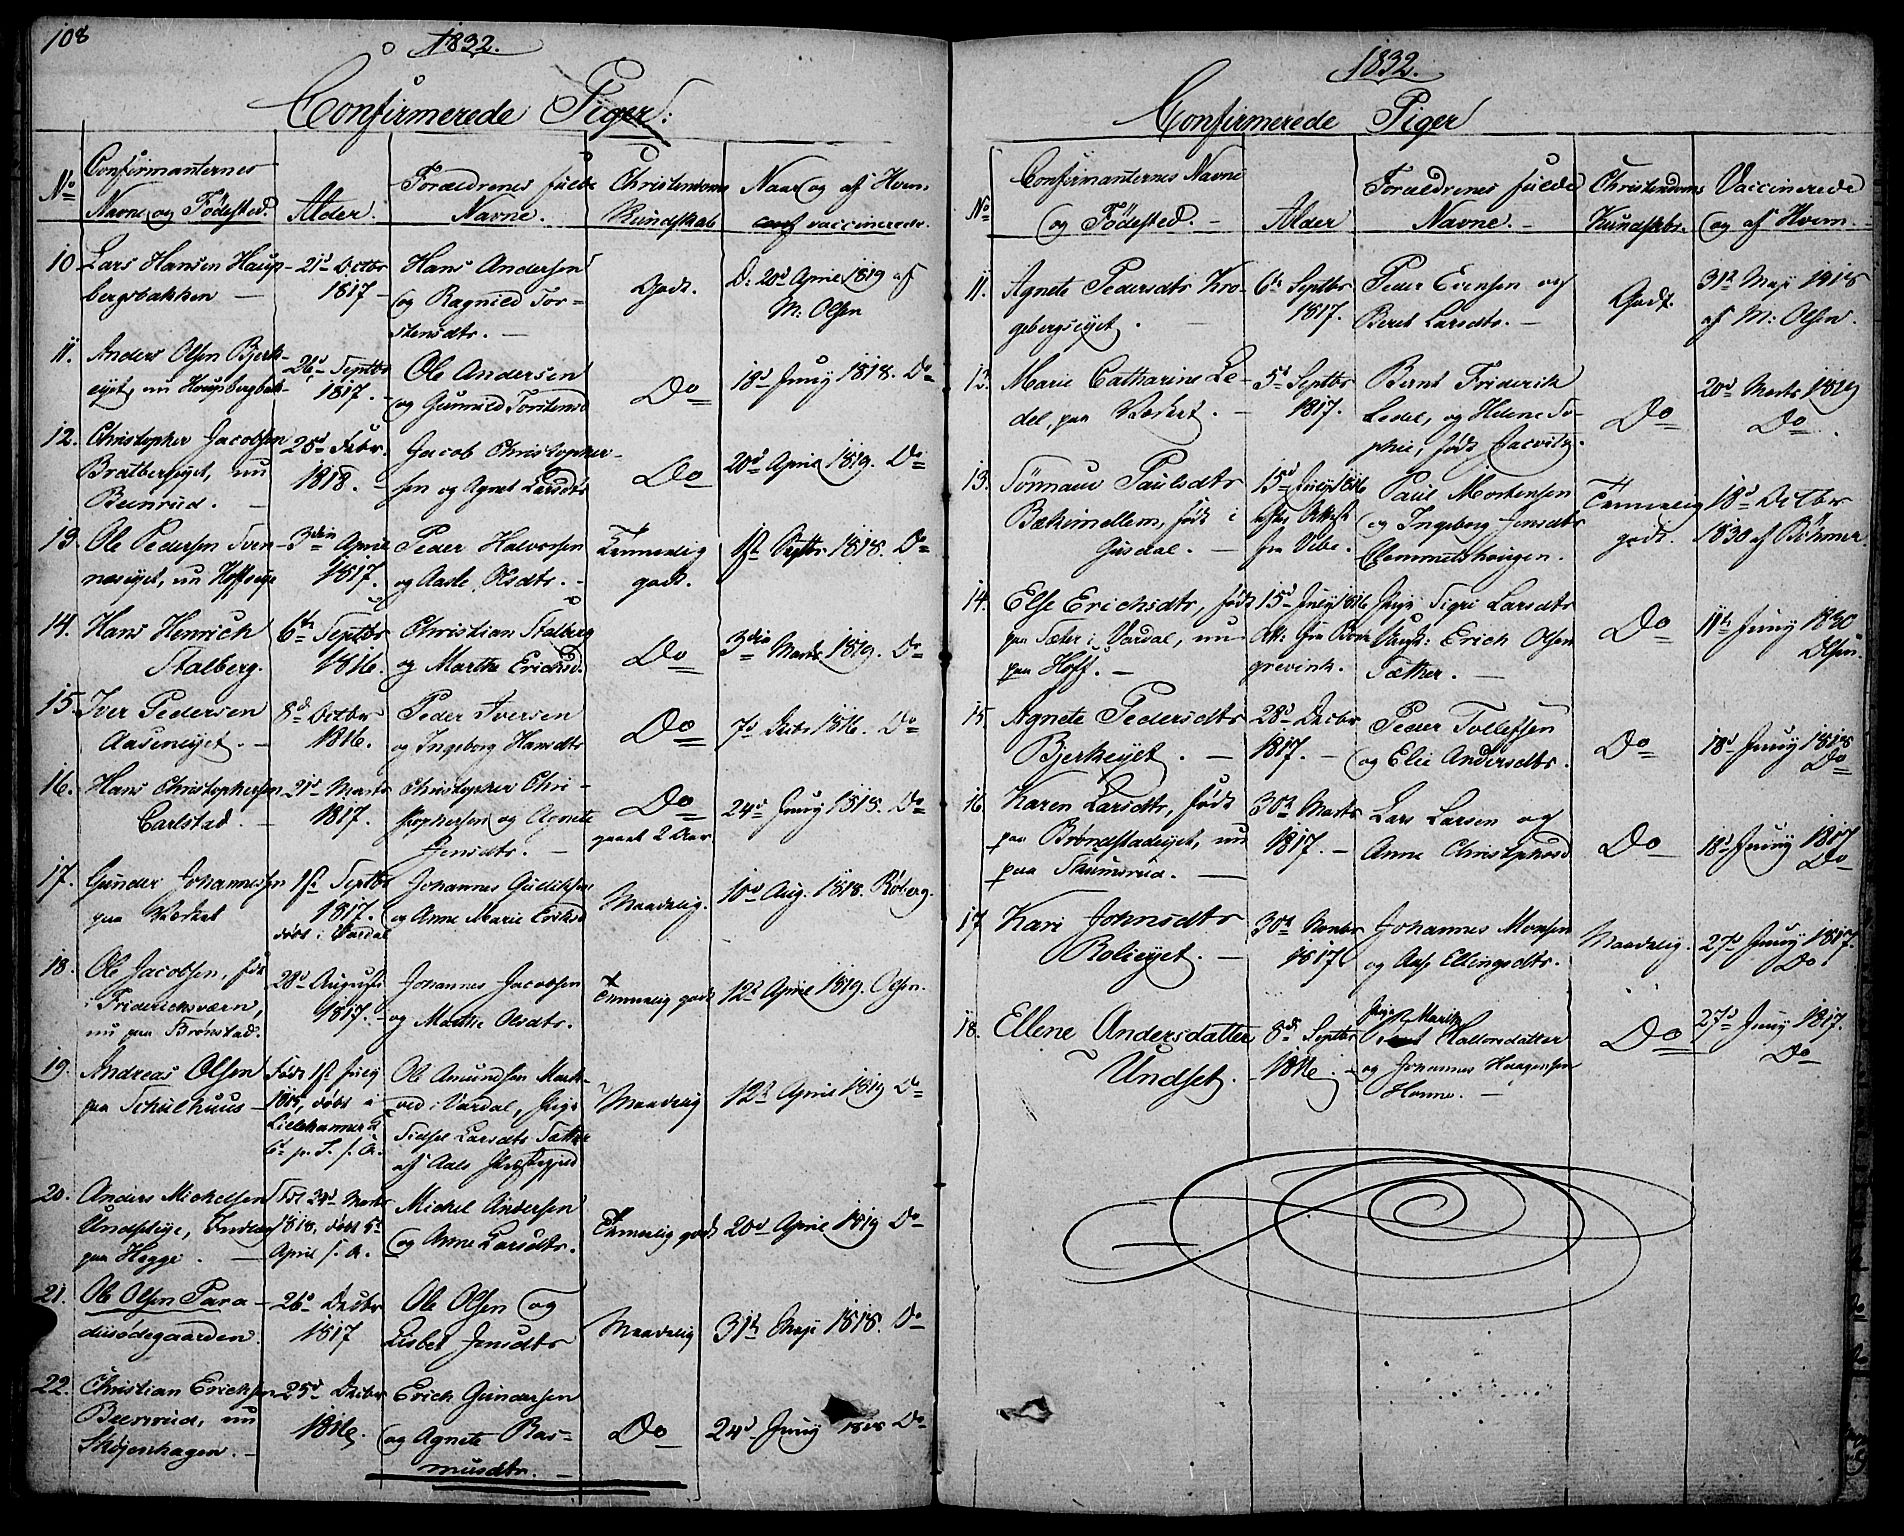 108
1832.
Confirmerede Piger:
No
Confirmanternes
Navne og Fødested.
Alder.
Forældrenes fulde
Navne.
Christendoms
Kundskab
Naar og af Hvem
vaccinerede.
10. Lars Hansen Haup-
bergsbakken
21d Octbr
1817
Hans Andersen
og Ragnild Tor-
stensdtr.
Godt.
D. 20d April 1819 af
M: Olsen
11. Anders Olsen Bjerk-
eiet, nu Haupbergbak-
26d Septbr
1817.
Ole Andersen
og Gunnild Torstensd
Do
18d Juny 1818. Do
12. Christopher Jacobsen
Bratbergeiet, nu
Beenrud.
25d Febr.
1818.
Jacob Christopher-
sen og Agnet Larsdtr
Do
20d April 1819. Do
13. Ole Pedersen Sven-
næseiet, nu Hoffseie
3die April
1817.
Peder Halvorsen
og Aasle Olsdtr.
Temmelig
godt.
1st Septbr 1818. Do
14. Hans Henrich
Stalberg.
6te Septbr
1816.
Christian Stalberg
og Marthe Erichsd.
Do
3die Marts 1819. Do
15. Iver Pedersen
Aaseneiet.
8d Octbr
1816.
Peder Iversen
og Ingeborg Hansdtr
Do
7d 1816. Do
16. Hans Christophersen
Carlstad.
21d Marts
1817.
Christopher Chri-
stophersen og Agnete
Jensdtr.
Do
gaaet 2 Aar
24d Juny 1818. Do
17. Gunder Johannesen
paa Værket
1ste Septbr
1817.
døbt i Vardal
Johannes Gudiksen
og Anne Marie Eriksd
Maadelig.
10d Aug. 1818. Roberg.
18. Ole Jacobsen, fød
Fridericksværn,
nu paa Brønstad.
28d August
1817.
Johannes Jacobsen
og Marthe Olsdtr.
Temmelig godt
12d April 1819. Olsen.
19. Andreas Olsen
paa Schulhuus
Født 1st July
1815, døbt i
Lillehammer d
6d
Ole Amundsen
i Vardal, Pige
Sidsel Larsdtr Sæther
af Aals Præstegjeld
Maadelig
12d April 1819 Do
20. Anders Michelsen
Undseteie,
paa Hegge.
24d Marts
1818, døbt 5d
April s. A.
Michel Andersen
og Anne Larsdtr.
Temmelig godt
20d April 1819 Do
21. Ole Olsen Para-
diisødegaarden.
26d Decbr
1817
Ole Olsen og
Lisbet Jensdtr
Maadelig
31te Maji 1818. Do
22. Christian Erichsen
Beenrud, nu
Skøjenhagen.
25d Decbr
1816.
Erich Gundersen
og Agnete Ras-
musdtr.
Do
24d Juny 1818 Do
1832.
Confirmerede Piger
No
Confirmanternes Navne
og Fødested.
Alder
Forældrenes fulde
Navne.
Christendoms
Kundskab.
Vaccinerede
og af Hvem
11. Agnete Pedersdtr Kro-
gebergseiet.
6te Septbr
1817.
Peder Evensen og
Berit Larsdtr.
Godt.
31te Maji 1818
af M: Olsen.
12. Marie Catharine Le-
del, paa Værket.
5d Septbr
1817.
Bernt Friderik
Ledel, og Helene So-
phie, født
Do
20d Marts 1819
Do
13. Sønnauv Paulsdtr
Bækimellem, født i
Gusdal.
15d July 1816
efter Attest
fra Vibe.
Paul Mortensen
og Ingeborg Jensdtr
Clemmetshougen.
Temmelig
godt.
18d Octbr
1830 af Bøhmer
14. Else Erichsdtr, født
paa Sæter i Vardal, nu
paa Hoff.
15d July 1816
Att: fra Bonnevie
Pige Sigri Larsdtr
Ungk: Erich Olsen
Sæther.
Do
11te Juny 1830
Olsen.
15. Agnete Pedersdtr
Bjerkeiet.
28d Decbr
1817.
Peder Tollefsen
og Elie Andersdtr.
Do
18d Juny 1818
Do
16 Karen Larsdtr, født
paa Brøndstadeiet, nu
paa Skumsrud.
30te Marts
1817.
Lars Larsen og
Anne Christophersd
Do
18d Juny 1817
Do
17 Kari Johnsdtr
Rolieiet.
30te Novbr
1817
Johannes Monsen
og Ellingsdtr.
Maadelig.
27d Juny 1817.
Do
18. Ellene Andersdatter
Undset.
8de Septbr
1816.
Pige Marit
Halvorsdatter
og Johannes Haagensen
Honne.
Do
27d Juny 1817.
Do